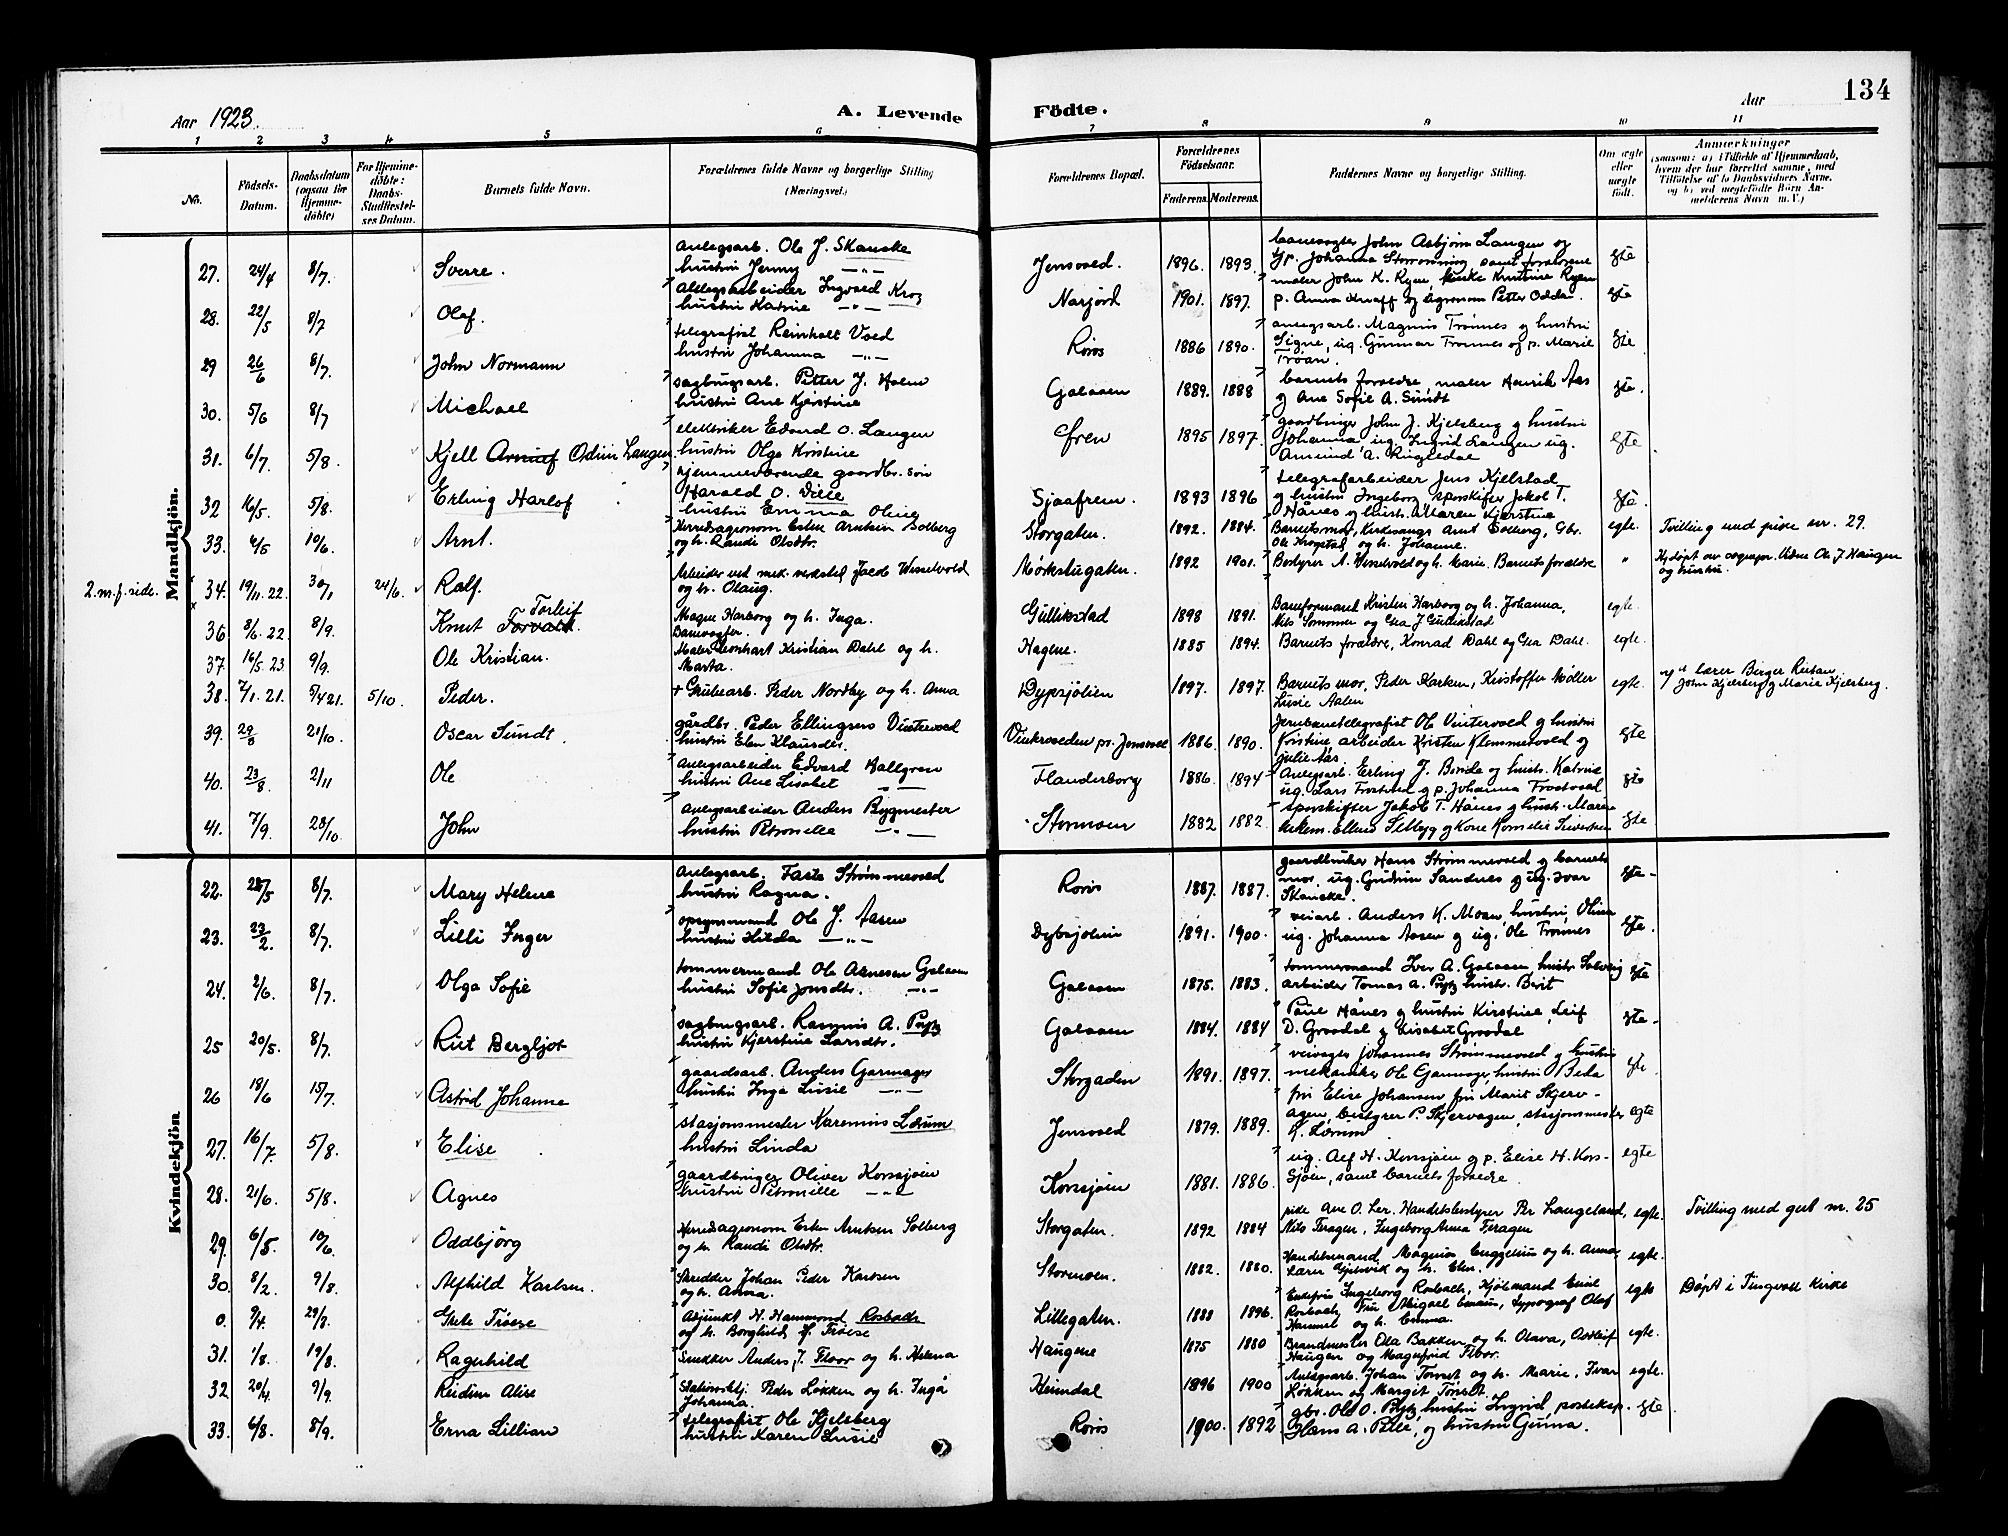 134
Aar 1923.
A. Levende
Födte.
Aar
1 2 3 4 5 6 7 8 9 10 11
No.
Födsels-Datum.
Daabsdatum (ogsaa for Hjemme-döbte)
For Hjemme-döbte: Daabs-Stadfæstel-ses Datum.
Barnets fulde Navn.
Forældrenes fulde Navne og borgerlige Stilling (Næringsvei.)
Forældrenes Bopæl.
Forældrenes Födselsaar.
Faderens. Moderens.
Faddernes Navne og borgerlige Stilling.
Om ægte eller uægte födt.
Anmerkninger (saasom: a) i Tilfælde af Hjemmedaab, hvem der har forrettet samme, med Tilföielse af to Daabsvidners Navne, og b) ved uægtefödte Börn An-melderens Navn m. V.)
Mandkjön.
27. 24/4 8/7. Sverre. anlegsarb. Ole J. Skancke
hustru Jenny —"— Jensvold. 1896. 1893. banevogter John Asbjørn Langen og
gr. Johanna samt forældrene egte
28. 22/5 8/7 Olaf. anlegsarbeider Ingvald Krog
hustru Katrine —"— Narjord 1901. 1897. maler John K. Ryen, enke Kristine Ryen
p. Anna Knaff og agronom Petter Odden. egte
29 26/6 8/7. John Normann telegrafist Reinholt Vold
hustru Johanna —"— Röros 1886 1890. anlegsarb. Magnus Trønnes og hustru
Signe, ug. Gunnar Trønnes og p. Marie
Trøan. egte
30. 5/6 8/7 Michael sagbrugsarb. Petter J. Holm
hustru Ane Kjerstine Galaaen 1889. 1888 barnets forældre, maler Henrik Aas
og Ane Sofie A. Sundt egte.
31. 6/7. 5/8. Kjell Odin Langen. elektriker Edvard O. Langen
hustru Olga Kristine Øren 1895 1897. gaardbruger John J. Kjelsberg og hustru
Johanna ug. Ingrid Langen ug.
Amund A. Ringledal egte
32 16/5. 5/8. Erling Harlof hjemmeværende gaardbr. søn
Harald O. Dille
hustru Emma Oline Sjaafrem. 1893 1896 telegrafarbeider Jens Kjelstad
og hustru Ingeborg sporskifter Jakob T.
Hånes og hust. Maren Kjerstine egte.
33. 6/5 10/6. Arnt. Herredsagronom Esten Arntsen Solberg
og h. Randi Olsdtr. Storgaten. 1892. 1884. Barnets mor, Kirkesanger Arnt Solberg, Gbr.
Ole Krogstad og h. Johanne. egte. Tvilling med pike nr. 29.
2. m. f. side. 34. 19/11. 22. 30/1 24/6. Ralf. Arbeider ved mek. verksted Jacob Wesselvold
og h. Olaug. Mørkstugaten. 1892 1901. Bestyrer A. Wesselvold og h. Marie. Barnets forældre " Hj.døpt av Ole J Haugen
og hustru.
36 8/6. 22. 8/9. Knut Torleif Magne Harborg og h. Inga.
Banevogter. Gullikstad 1898 1891. Baneformand Kristen Harborg og h. Johanna,
Nils Sommer og Gea J Gullikstad egte.
37 16/5. 23 9/9. Ole Kristian. Maler Leonhart Kristian Dahl og h.
Marta. Hagene. 1885 1894. Barnets forældre, Konrad Dahl og Gea Dahl. egte.
38. 7/1. 21. 5/4 21. 5/10. Peder. + Grubearb. Peder Nordby og h. Anna Dypsjölien 1897. 1897. Barnets mor, Peder Harken, Kristoffer Møller
Lusie Aalen egte. v/ lærer Berger Reitan
John Kjelsberg og Marie Kjelsberg.
39. 29/8 21/10. Oscar Sundt gårdbr. Peder Ellingsen Vintervold
hustru Elen Klausdtr. Vinkrvolden pr. Jensvold 1886. 1890. jernbanetelegrafist Ole Vintervold og hustru
Kristine arbeider Kristen Klemmetvold og
Julie Aas egte
40. 23/8. 2/11 Ole anlegsarbeider Edvard Hallgren
hustru Ane Lisabet —"— Flanderborg 1886. 1894 anlegsarb. Erling J. Borde og hustr. Katrine
ug. Lars Trøstvol og p. Johanna Trøstvol egte
41. 7/9. 28/10. John anlegsarbeider Anders Bygmester
hustru Petronelle —"— Stormoen 1882 1882. sporskifter Jakob T. Hånes og hust. Maren
Ellend Selbyg og Kone Kornelie Sivertsen egte
Kvindekjön
22. 28/5 8/7. Mary Helene anlegsarb. Faste Strømmevold
hustru Ragna. Röros 1887. 1887. gaardbruker Hans Strømmevold og barnets
mor, ug. Gudrun Sandnes og ug. Ivar
Skancke. egte.
23. 23/2. 8/7. Lilli Inger opsynmand Ole J. Aasen
hustru Hilda —"— Dybsjolien 1891. 1900. veiarb. Anders K. Moen hustru, Olina
ug. Johanna Aasen og ug. Ole Trønnes egte.
24. 2/6. 8/7. Olga Sofie tommermand Ole Arnesen Galaaen
hustru Sofie Jonsdtr. —"— Galaaen 1875. 1883. tommermand Iver A. Galaaen, hustr. Solveig
arbeider Tomas A. Prytz hustr. Berit egte
25 20/5. 8/7. Rut Bergljot sagbrugsarb. Rasmus A. Prytz
hustru Kjerstine Larsdtr. Galaaen 1884. 1884 Paul Hånes og hustru Kirstine, Leif
D. Grodal og Lisabet Grodal egte.
26 18/6 15/7. Astrid Johanne gaardsarb. Anders Garmager
hustru Inga Lusie —"— Storgaden 1891. 1897. veivogter Johannes Strømmevold og hustru
mekaniker Ole Garmager, hustru Beda egte.
27. 16/7. 5/8. Elise stasjonsmester Karenius Lorum
hustru Linda Jensvold 1879. 1889. fru Elise Johansen fru Marit Skjerv-
agen, bestyrer P. Skjervagen, stasjonsmester
K. Lorum egte
28. 21/6. 5/8. Agnes gaardbruger Oliver Korssjøen
hustru Petronille —"— Korssjøen 1881. 1886. ug. Alf H. Korssjøen og p. Elise H. Kors-
sjøen, samt barnets forældre. egte
29. 6/5. 10/6. Oddbjörg Herredsagronom Esten Arntsen Solberg
og h. Randi Olsdtr. Storgaten. 1892 1884 pike Ane O. Ler. Handelsbestyrer Per Langeland,
Nils Feragen, Ingeborg Anna Feragen egte. Tvilling med gut nr. 25
30. 8/2. 9/8. Alfhild Karlsen. Skrædder Johan Peder Karlsen
og h. Anna. Stormoen. 1882. 1880. Handelsmand, Magnus Engzelius og h. Anna,
Lærer Gjelsvik og h. Elen. egte.
0. 9/4. 29/8. Grete Tröese Adjunkt H. Hammond Rosbach
og h. Borghild f. Tröese Lillegaten. 1888 1896. Enkefru Ingeborg Rosbach, Kjöbmand Emil
Rosbach, Fru Abigael typograf Olaf
Hammel og h. Emma. egte Döpt i Tingvoll Kirke
31. 1/8. 19/8. Ragnhild Snekker Anders J. Floor og h. Helena Haugene 1875 1880 Brandmester Ola Bakken og h. Olava, Ostleif
Haugen og Magnfrid Floor. egte.
32 20/4. 9/9. Reidun Alise Stationsbtj. Peder Løkken og h. Inga
Johanna. Heimdal 1896 1900 Anlegsarb. Johan Tonset og h. Marie, Ivar
Løkken og Margit Tonset. egte.
33. 6/8. 8/9. Erna Lillian telegrafist Ole Kjelsberg
hustru Karen Lusie Röros 1900. 1892 gbr. Ole O. Prytz hustru Ingrid postekap.
Hans A. Pelle, og hustru Gunna. egte